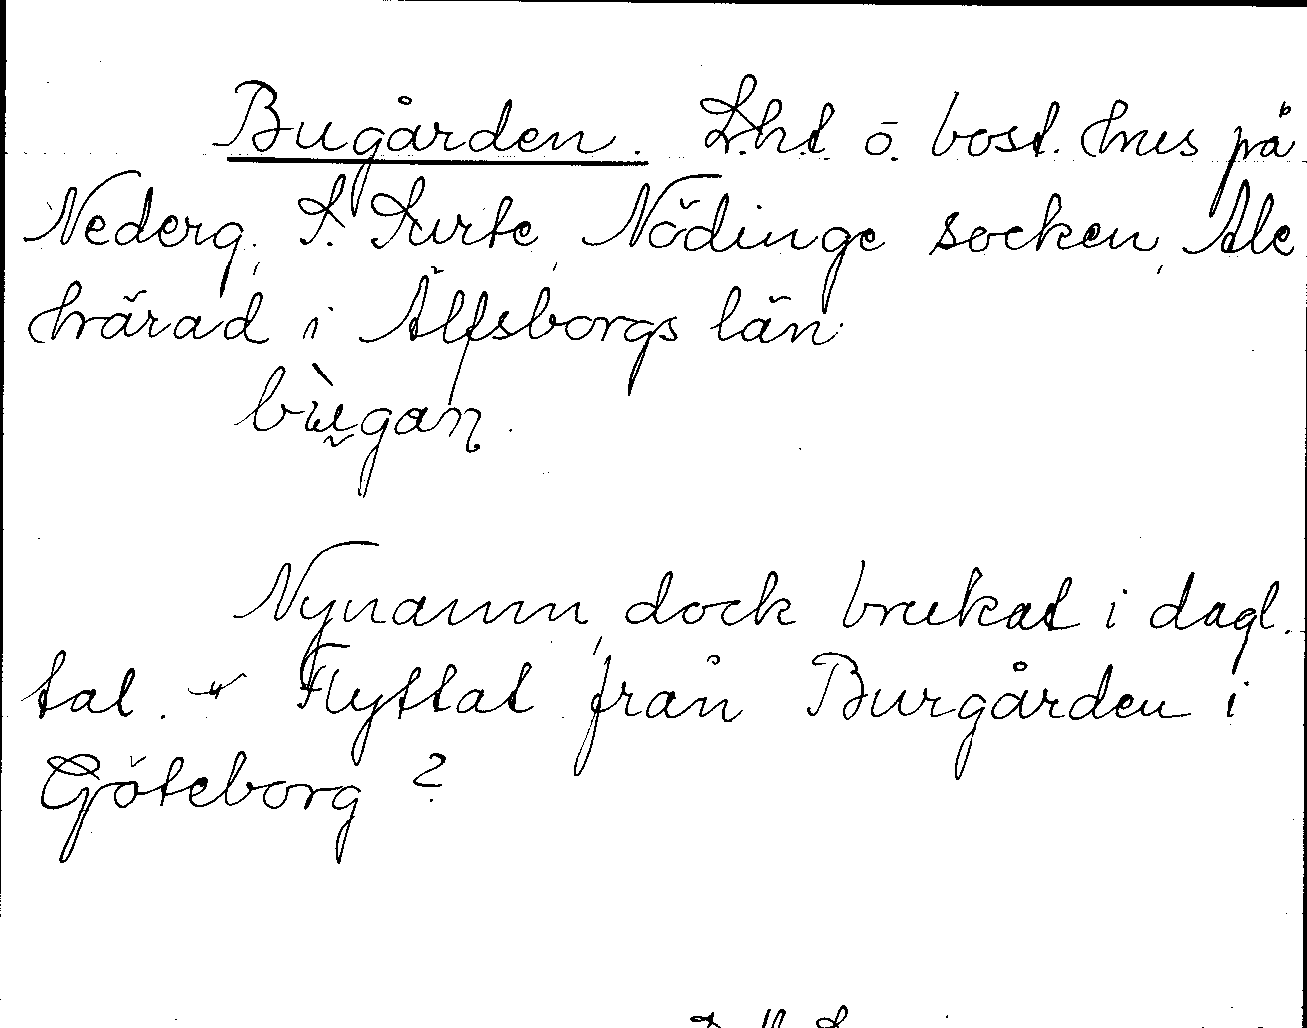 Bugården. L.h.t. o. bost. hus på
Nederg, S. Surte, Nödinge socken, Ale
härad i Älfsborgs län.
bùgan.
Nynamn, dock brukat i dagl.
tal. Flyttat från Burgården i
Göteborg?